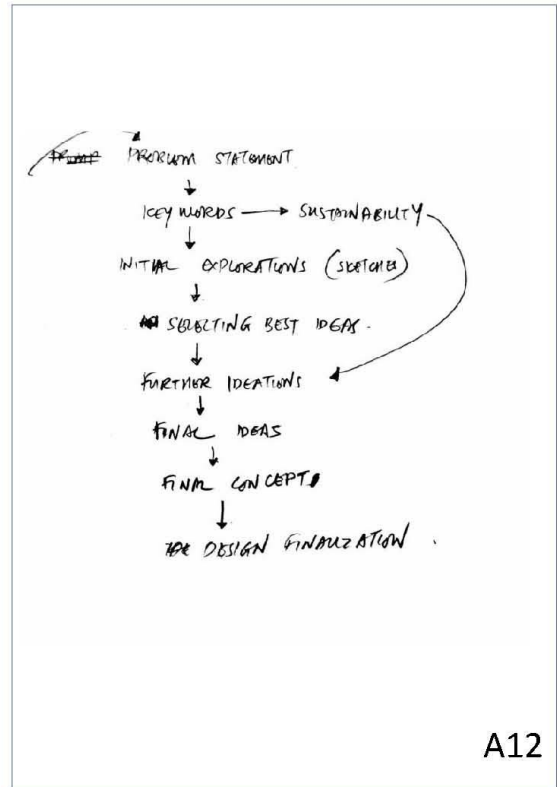 PROBLEM STATEMENT
KEY WORDS → SUSTAINABILITY
INITIAL EXPLORATIONS (SKETCHES)
SELECTING BEST IDEAS.
FURTHER IDEATIONS
FINAL IDEAS
FINAL CONCEPT
DESIGN FINALIZATION.
A12